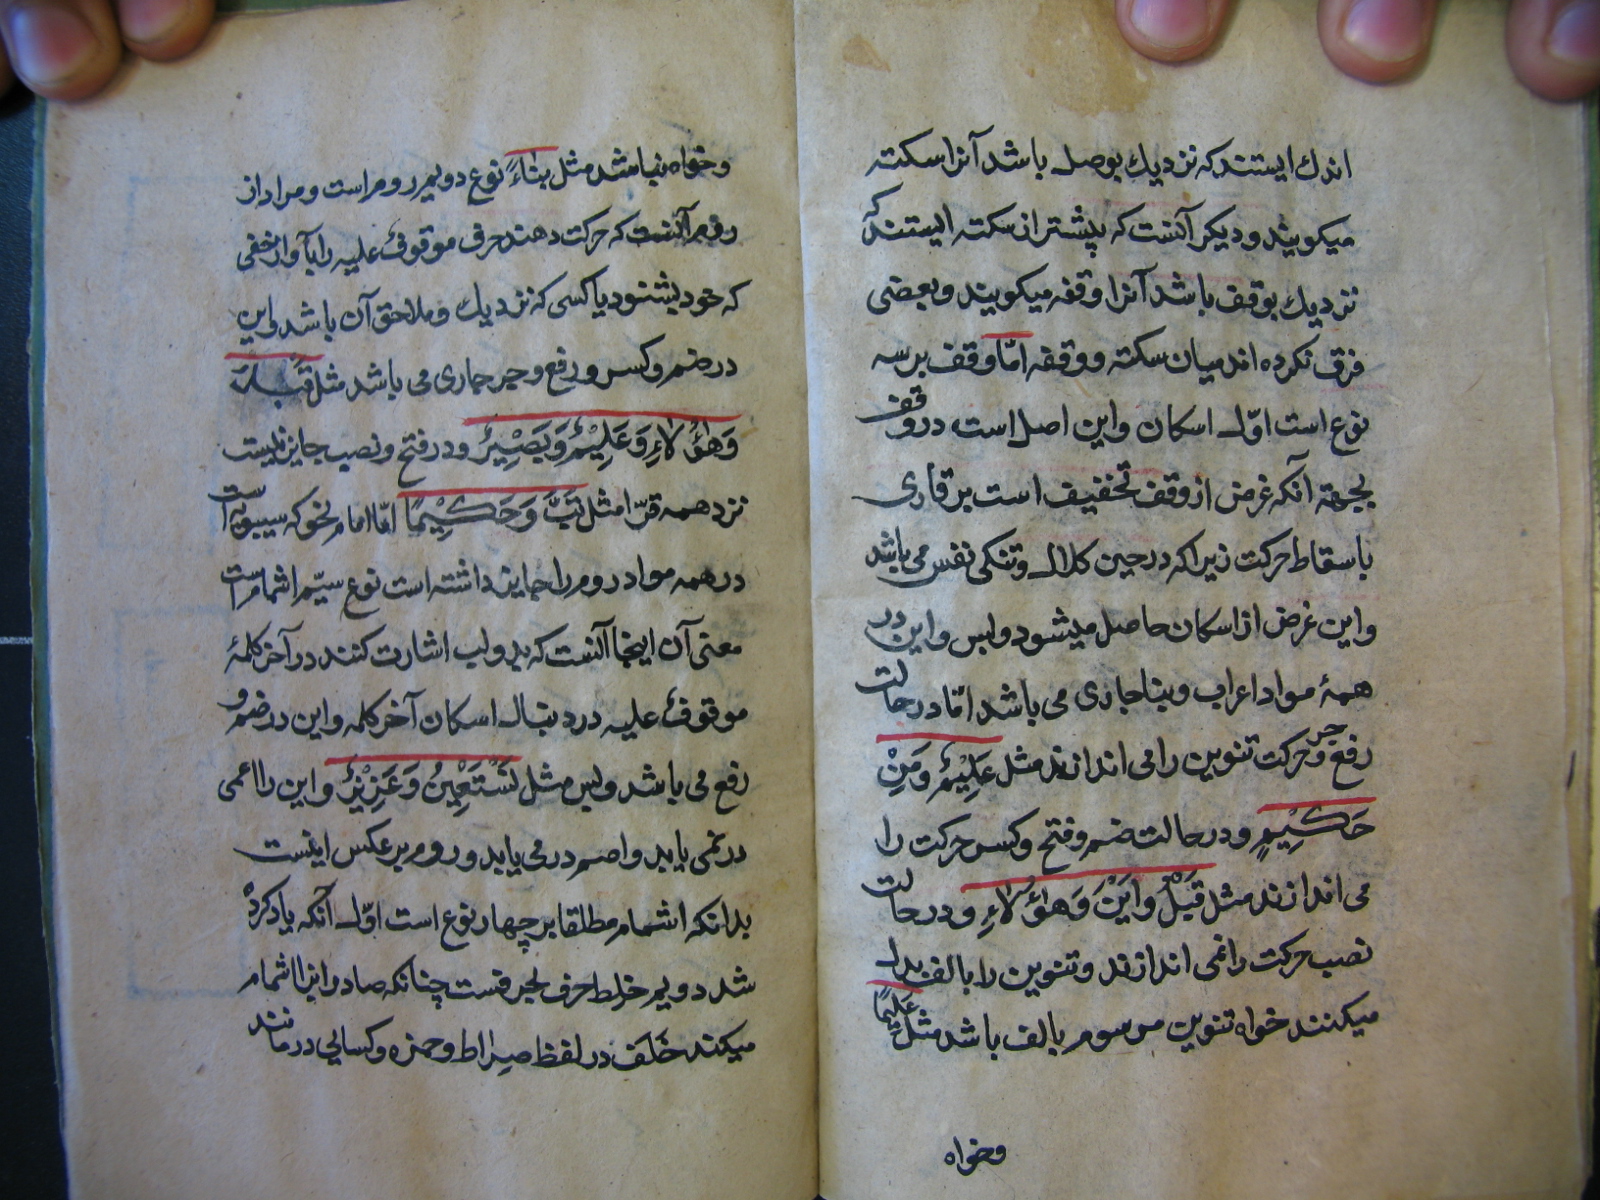 اندك ايستند كه نزديك بوصل باشد آنرا سكته
ميكويند و ديكر آنست كه پيشتر از سكته ايستند كه
نزديك بوقف باشد آنرا وقفه ميكويند و بعضى
فرق نكرده اند ميان سكته و وقفه امّا وقف بر سه
نوع است اوّل اسكان و اين اصل است در وقف
بجهة آنكه غرض از وقف تخفيف است بر قارى
باسقاط حركت زيرا كه در حين كلال و تنكى نفس مى باشد
و اين غرض از اسكان حاصل ميشود و بس و اين در
همهٔ مواد اعراب و بنا جارى مى باشد امّا در حالت
رفع و جر حركت تنوين را مى اندازند مثل عَلِيْمٌ وَ مَنْ
حَكِيْمٍ و در حالت ضم و فتح و كسر حركت را
مى اندازند مثل قَبْلُ وَاَيْنَ وَهٰؤُلَاءِ و در حالت
نصب حركت را نمى اندازند و تنوين را بالف بدل
ميكنند خواه تنوين مرسوم بالف باشد مثل عَلِيمًا
وخواه
وخواه نباشد مثل بِنَاءً نوع دويم روم است و مراد از
روم آنست كه حركت دهند حرف موقوف عليه را بآواز خفى
كه خود بشنود يا كسى كه نزديك و ملاحق آن باشد و اين
در ضم و كسر و رفع و جر جارى مى باشد مثل قَبْلُ
وَهٰؤُلَاءِ وَعَلِيْمٌ وَبَصِيْرٌ و در فتح و نصب جايز نيست
نزد همه قرّا مثل تَبَّ وَحَكِيْمًا امّا امام نحو كه سيبويه است
در همه مواد روم را جايز داشته است نوع سيّم اشمام است
معنى آن اينجا آنست كه بدو لب اشارت كنند در آخر كلمهٔ
موقوف عليه در دنبال اسكان آخر كلمه و اين در ضم و
رفع مى باشد و بس مثل نَسْتَعِيْنُ وَعَزِيْزٌ و اين را اعمى
در نمى يابد و اصم در مى يابد و روم بر عكس اينست
بدانكه اشمام مطلقا بر چهار نوع است اوّل آنكه ياد كرده
شد دويم خلط حرف بحرفست چنانكه صاد را بزا اشمام
ميكند خَلَف در لفظ صِراط و حمزه و كسايى در مانند